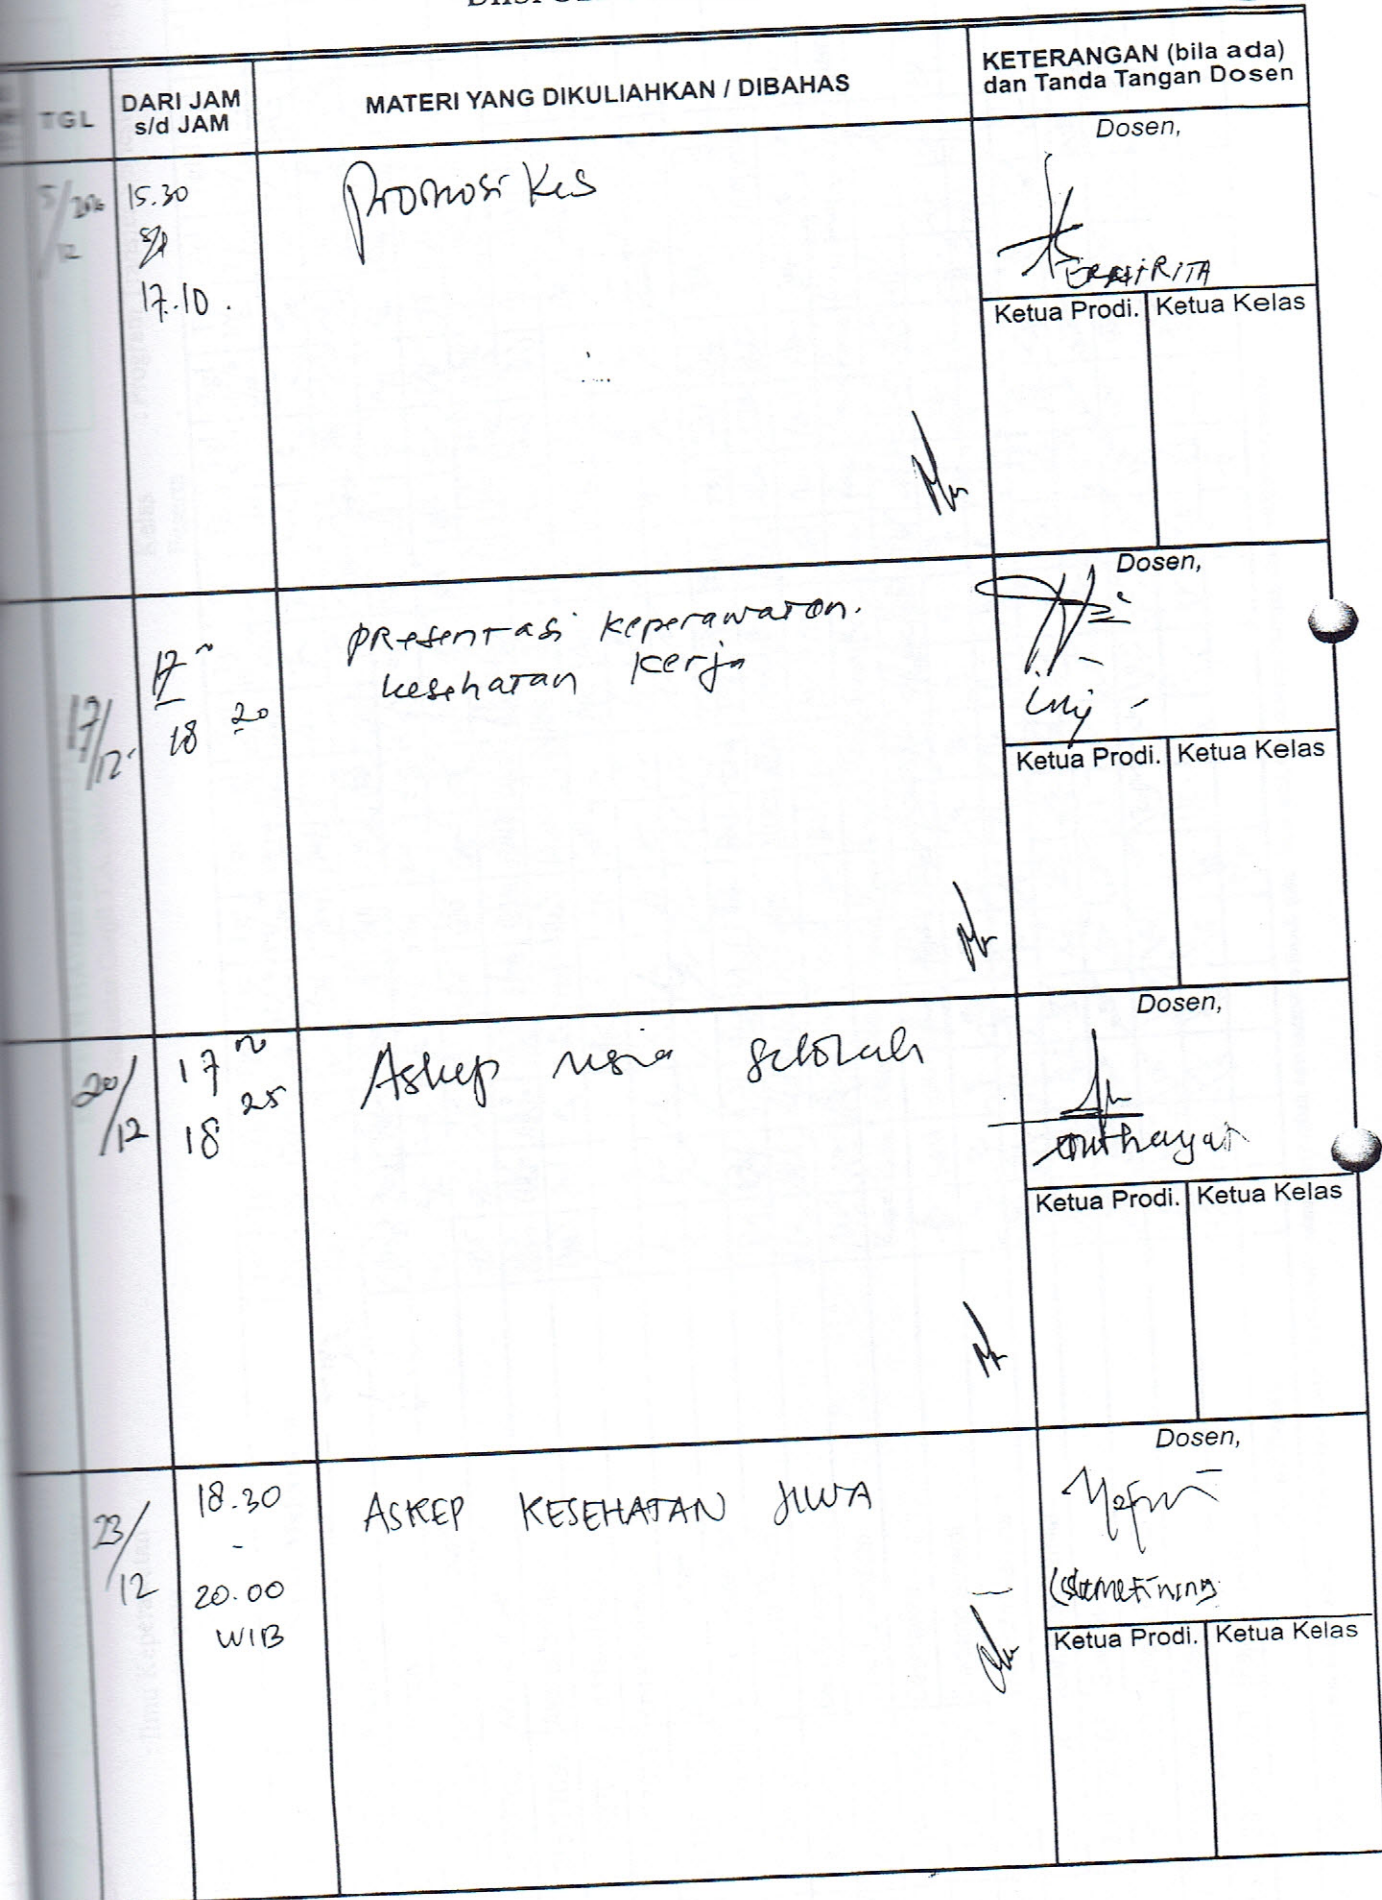 TGL
DARI JAM
s/d JAM
MATERI YANG DIKULIAHKAN / DIBAHAS
KETERANGAN (bila ada)
dan Tanda Tangan Dosen
15.30
s/d
17.10.
Promosi Kes
Dosen,
Ketua Prodi.
Ketua Kelas
17/12
17
18 20
PResentasi keperawatan.
kesehatan kerja
Dosen,
Ketua Prodi.
Ketua Kelas
20/12
17
18 25
Askep usia sekolah
Dosen,
Ketua Prodi.
Ketua Kelas
23/12
18.30
-
20.00
WIB
ASKEP KESEHATAN JIWA
Dosen,
Ketua Prodi.
Ketua Kelas